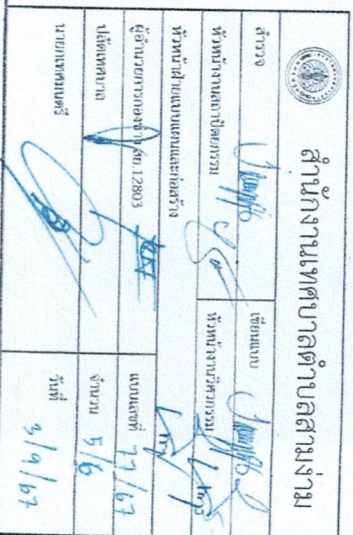 สำนักงานเทศบาลตำบลสามง่าม
สำรวจ
เขียนแบบ
หัวหน้างานสถาปัตยกรรม
หัวหน้างานวิศวกรรม
หัวหน้าฝ่ายแบบแผนและก่อสร้าง
ผู้อำนวยการกองช่าง 12803
ปลัดเทศบาล
แบบเลขที่ 77/67
จำนวน 5/6
นายกเทศมนตรี
วันที่ 3/9/67